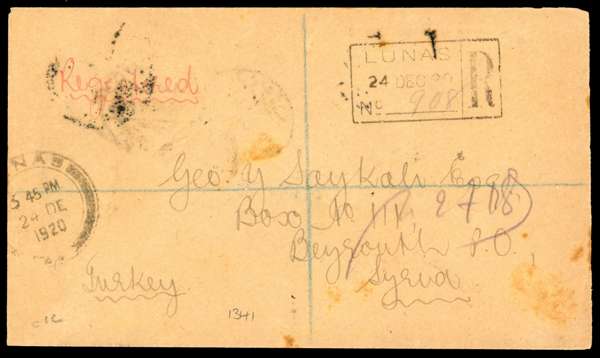 Registered
LUNAS
24 DEC 20
R
No 908
NAS
3 45 PM
24 DE
1920
Geo. Y Saykali Esqr
Box No 111, 2788
Beyrouth P.O.,
Turkey
Syria
1341